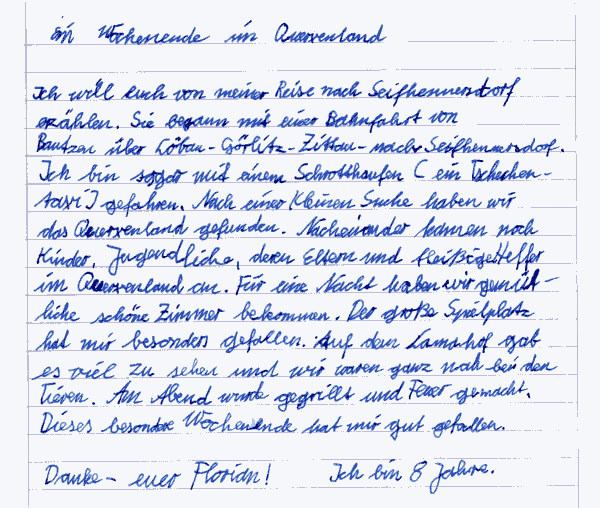 Ein Wochenende im Querxenland
Ich will euch von meiner Reise nach Seifhennersdorf
erzählen. Sie begann mit einer Bahnfahrt von
Bautzen über Löbau-Görlitz-Zittau-nach Seifhennersdorf.
Ich bin sogar mit einem Schrotthaufen (ein Tschechen-
taxi) gefahren. Nach einer kleinen Suche haben wir
das Querxenland gefunden. Nacheinander kamen noch
Kinder, Jugendliche, deren Eltern und fleißige Helfer
im Querxenland an. Für eine Nacht haben wir gemüt-
liche schöne Zimmer bekommen. Der große Spielplatz
hat mir besonders gefallen. Auf dem Lamahof gab
es viel zu sehen und wir waren ganz nah bei den
Tieren. Am Abend wurde gegrillt und Feuer gemacht.
Dieses besondere Wochenende hat mir gut gefallen.
Danke - euer Florian! Ich bin 8 Jahre.